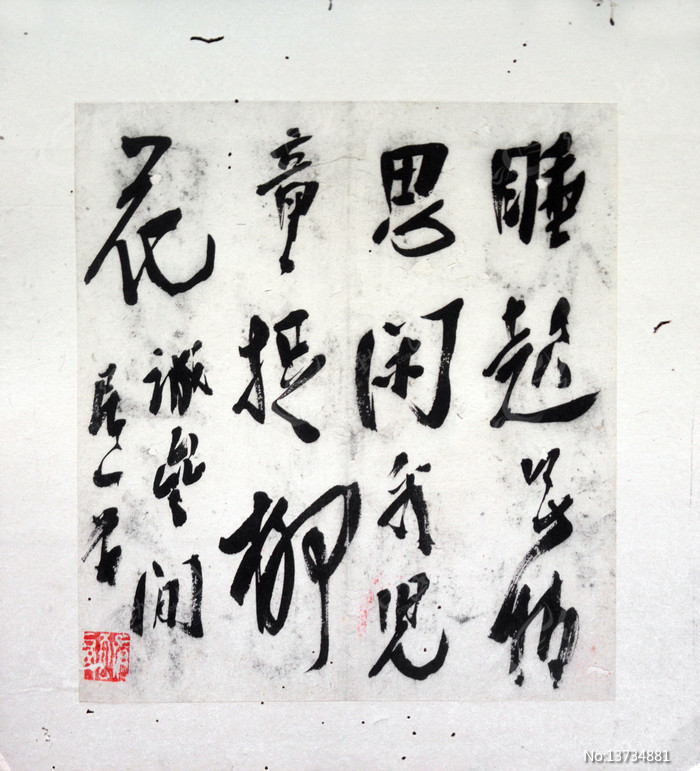 睡起無情
思閑看兒
童捉柳
花
誠齋閒
居一首
No:13734881